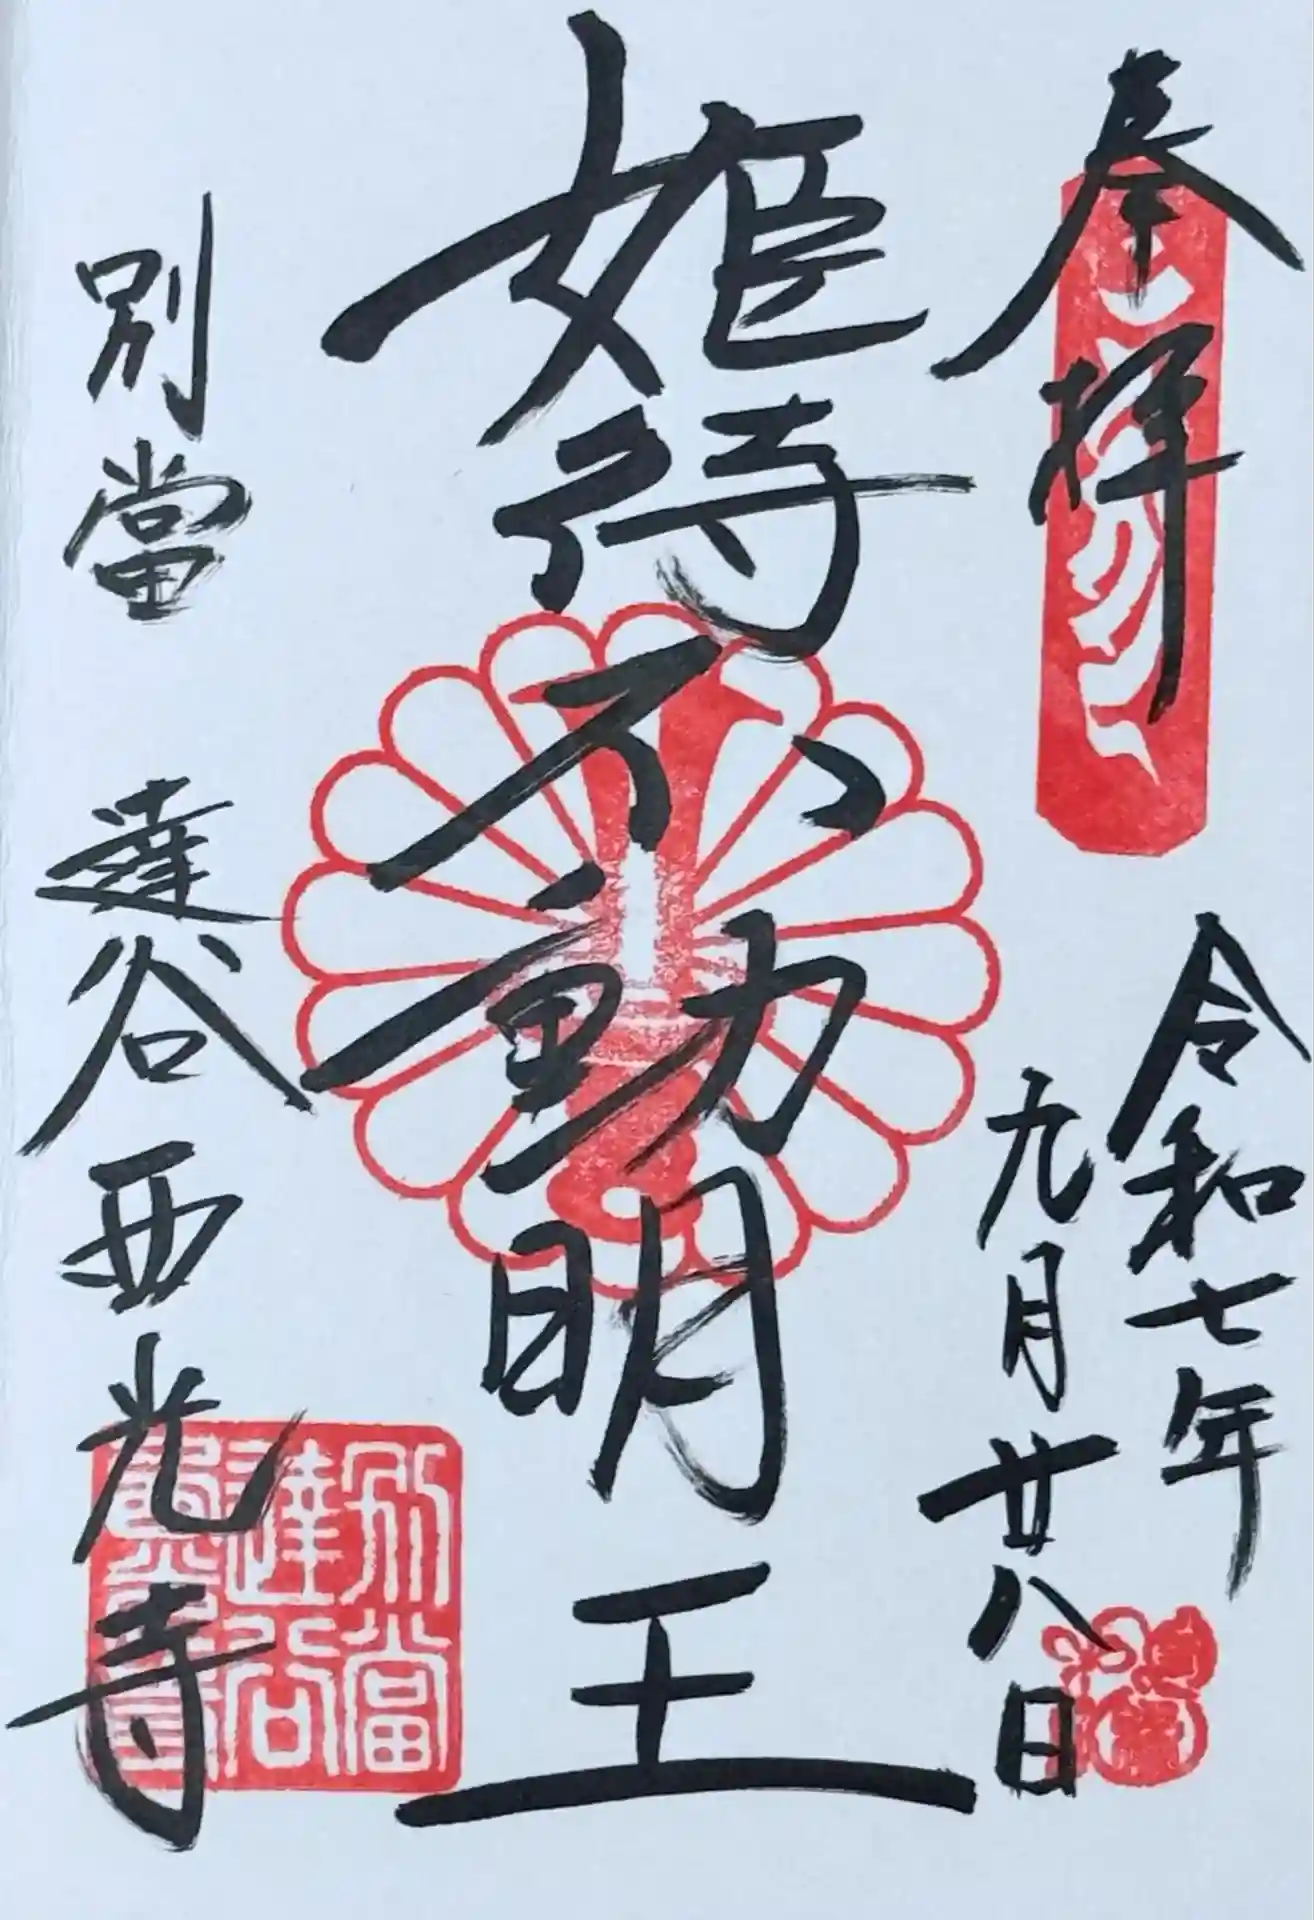 奉拝
令和七年
九月廿八日
姫待不動明王
別當 達谷西光寺
別當
達谷